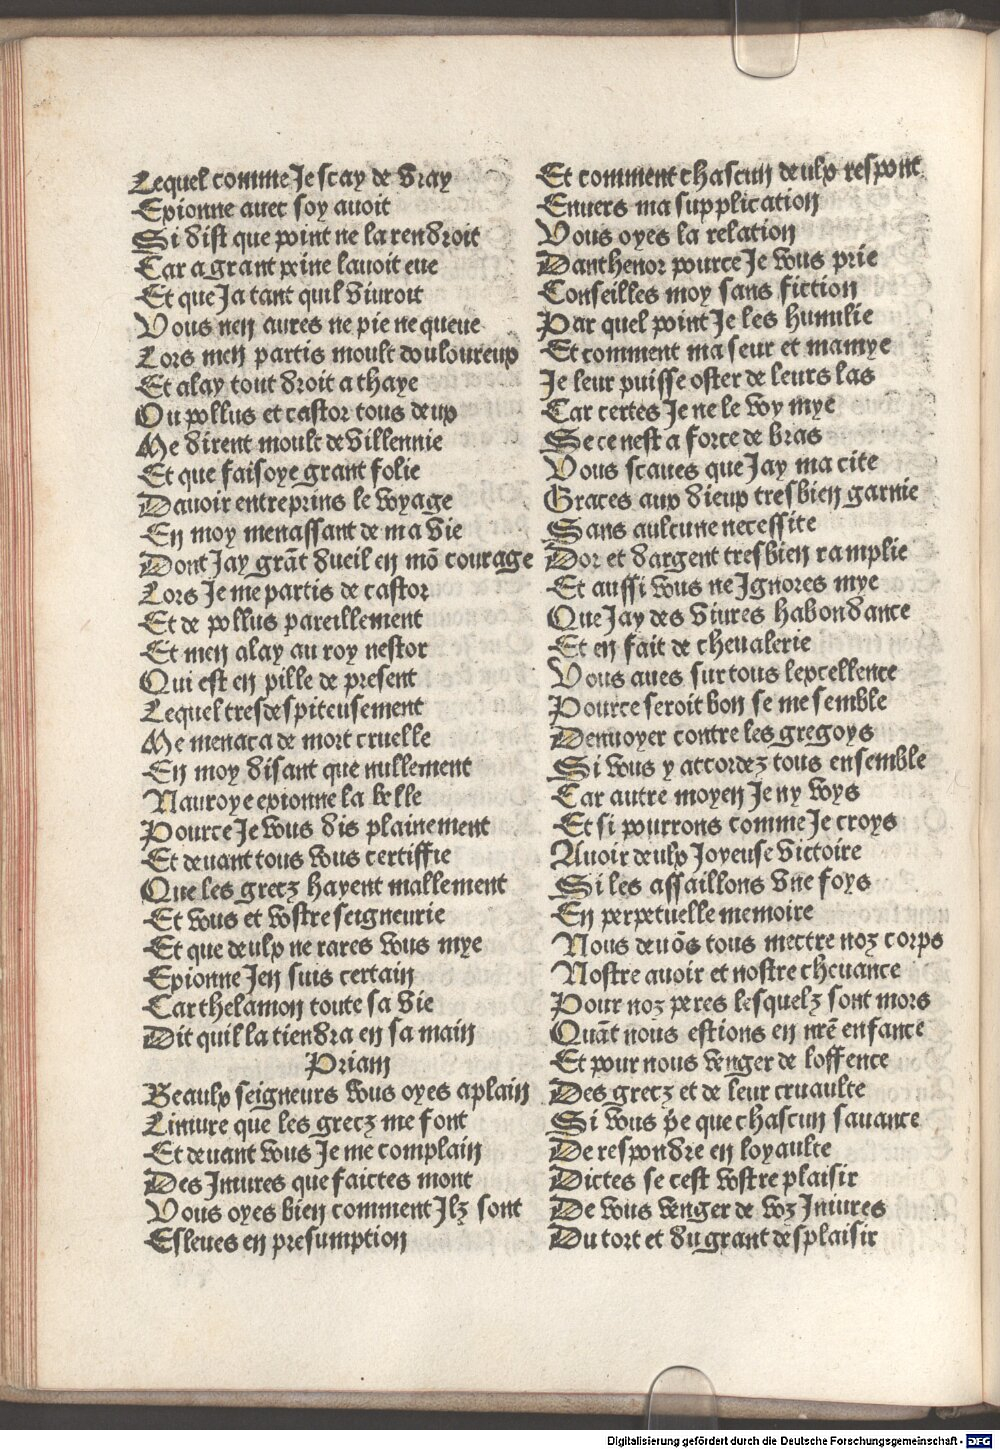 Lequel comme Je scay de vray
Exionne auec soy auoit
Si dist que point ne la rendroit
Car a grant peine lauoit eue
Et que Ja tant quil viuroit
Vous nen aures ne pie ne queue
Lors men partis moult douloureux
Et alay tout droit a thaye
Ou pollus et castor tous deux
Me dirent moult de villennie
Et que faisoye grant folie
Dauoir entreprins le voyage
En moy menassant de ma vie
Dont Jay grãt dueil en mõ courage
Lors Je me partis de castor
Et de pollus pareillement
Et men alay au roy nestor
Qui est en pille de present
Lequel tresdespiteusement
Me menaca de mort cruelle
En moy disant que nullement
Nauroye exionne la belle
Pource Je vous dis plainement
Et deuant tous vous certiffie
Que les grecz hayent mallement
Et vous et vostre seigneurie
Et que deulx ne rares vous mye
Exionne Jen suis certain
Car thelamon toute sa vie
Dit quil la tiendra en sa main
Priam
Beaulx seigneurs vous oyes aplain
Liniure que les grecz me font
Et deuant vous Je me complain
Des Iniures que faictes mont
Vous oyes bien comment Ilz sont
Esleues en presumption
Et comment chascun deulx respont
Enuers ma supplication
Vous oyes la relation
Danthenor pource Je vous prie
Conseilles moy sans fiction
Par quel point Je les humilie
Et comment ma seur et mamye
Je leur puisse oster de leurs las
Car certes Je ne le voy mye
Se ce nest a force de bras
Vous scaues que Jay ma cite
Graces aux dieux tresbien garnie
Sans aulcune necessite
Dor et dargent tresbien ramplie
Et aussi vous ne Ignores mye
Que Jay des viures habondance
Et en fait de cheualerie
Vous aues sur tous lexcellence
Pource seroit bon se me semble
Denuoyer contre les gregoys
Si vous y accordez tous ensemble
Car autre moyen Je ny voys
Et si pourrons comme Je croys
Auoir deulx Joyeuse victoire
Si les assaillons vne foys
En perpetuelle memoire
Nous deuõs tous mectre noz corps
Nostre auoir et nostre cheuance
Pour noz peres lesquelz sont mors
Quãt nous estions en nr̃e enfance
Et pour nous venger de loffence
Des grecz et de leur cruaulte
Si vous p̃e que chascun sauance
De respondre en loyaulte
Dictes se cest vostre plaisir
De vous venger de voz Iniures
Du tort et du grant desplaisir
Digitalisierung gefördert durch die Deutsche Forschungsgemeinschaft - DFG